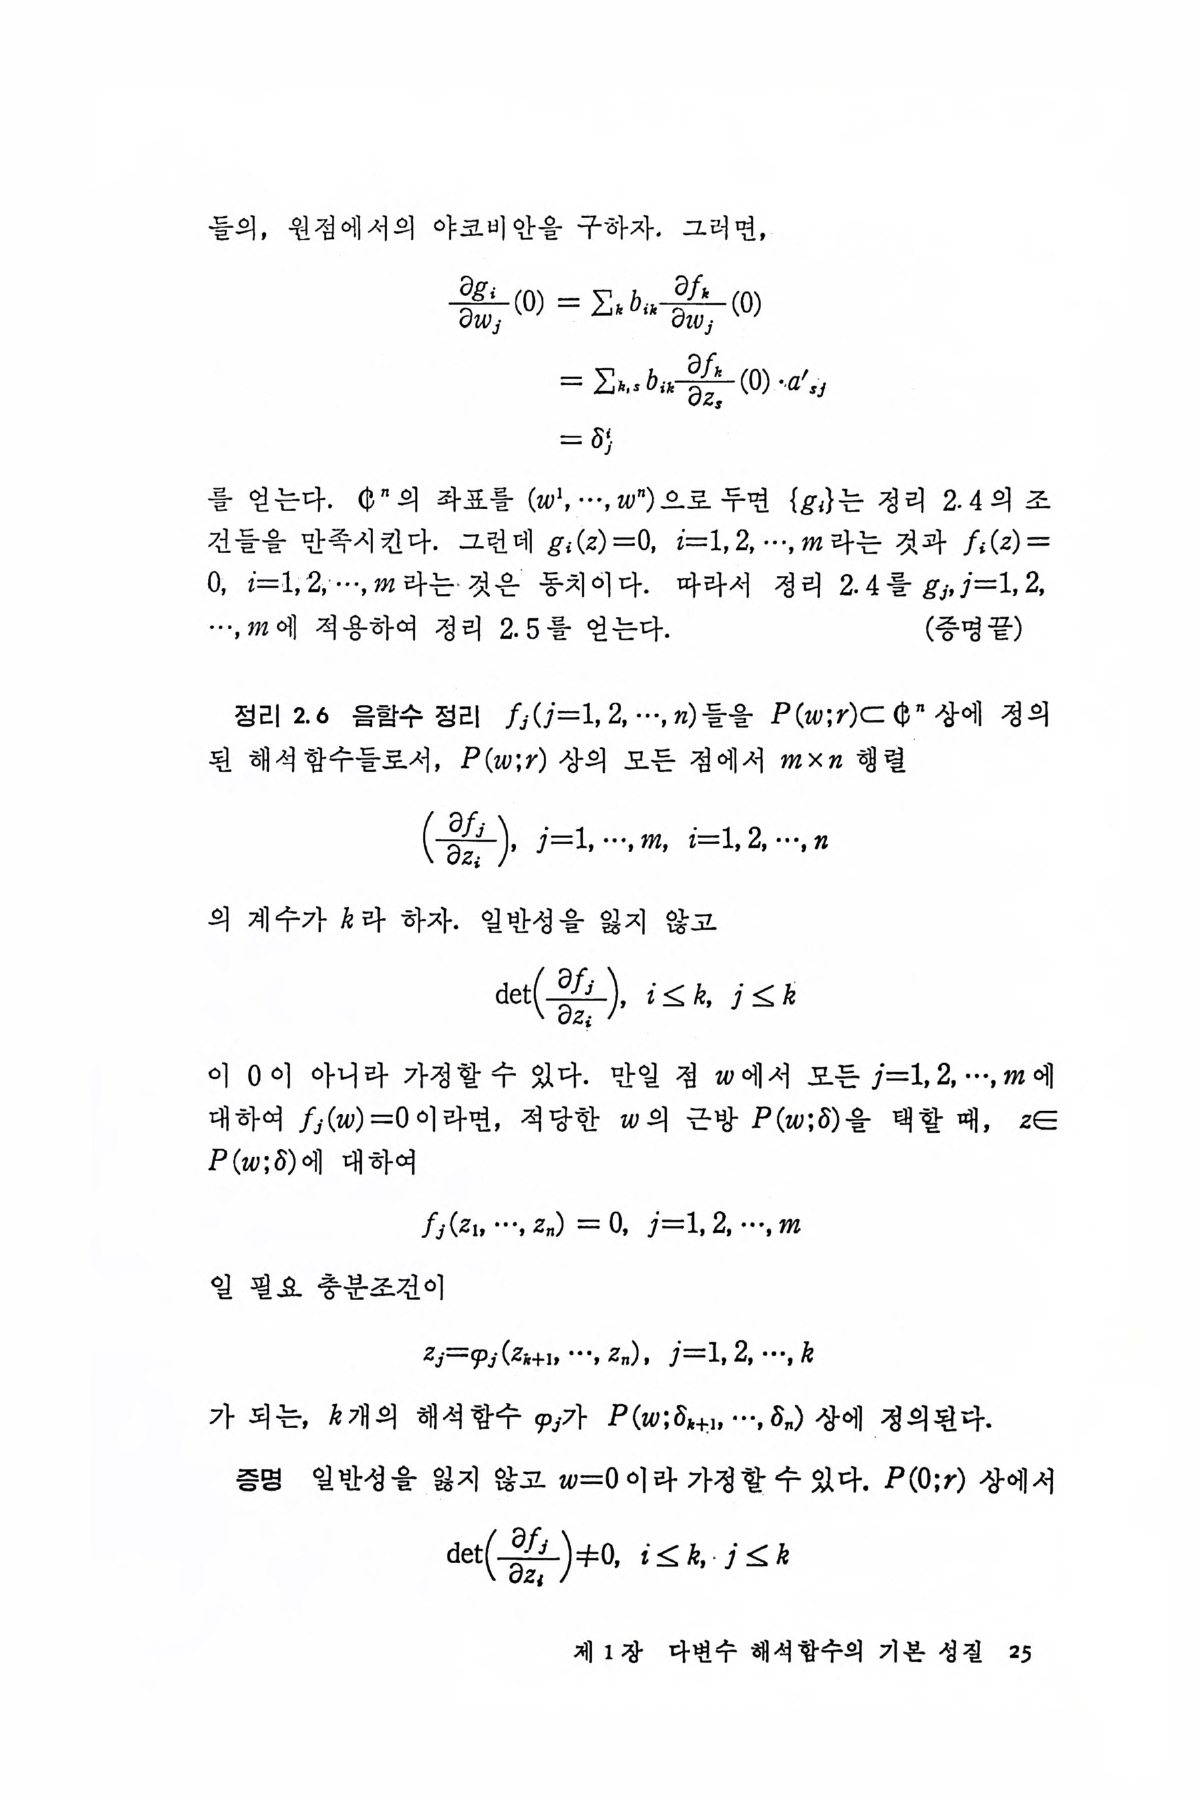 들의, 원점에서의 야코비안을 구하자. 그러면,
∂g_i/∂w_j (0) = ∑_k b_{ik} ∂f_k/∂w_j (0)
= ∑_{k,s} b_{ik} ∂f_k/∂z_s (0)·a′_{sj}
= δ^i_j
를 얻는다. ₵ⁿ의 좌표를 (w¹, ···, wⁿ)으로 두면 {g_i}는 정리 2.4의 조
건들을 만족시킨다. 그런데 g_i(z)=0, i=1, 2, ···, m라는 것과 f_i(z)=
0, i=1, 2, ···, m라는 것은 동치이다. 따라서 정리 2.4를 g_j, j=1, 2,
···, m에 적용하여 정리 2.5를 얻는다. (증명끝)
정리 2.6 음함수 정리 f_j(j=1, 2, ···, n)들을 P(w;r)⊂₵ⁿ상에 정의
된 해석함수들로서, P(w;r)상의 모든 점에서 m×n 행렬
(∂f_j/∂z_i), j=1, ···, m, i=1, 2, ···, n
의 계수가 k라 하자. 일반성을 잃지 않고
det(∂f_j/∂z_i), i≤k, j≤k
이 0이 아니라 가정할 수 있다. 만일 점 w에서 모든 j=1, 2, ···, m에
대하여 f_j(w)=0이라면, 적당한 w의 근방 P(w;δ)을 택할 때, z∈
P(w;δ)에 대하여
f_j(z_1, ···, z_n) = 0, j=1, 2, ···, m
일 필요 충분조건이
z_j=φ_j(z_{k+1}, ···, z_n), j=1, 2, ···, k
가 되는, k개의 해석함수 φ_j가 P(w;δ_{k+1}, ···, δ_n)상에 정의된다.
증명 일반성을 잃지 않고 w=0이라 가정할 수 있다. P(0;r)상에서
det(∂f_j/∂z_i)≠0, i≤k, j≤k
제 1 장 다변수 해석함수의 기본 성질 25